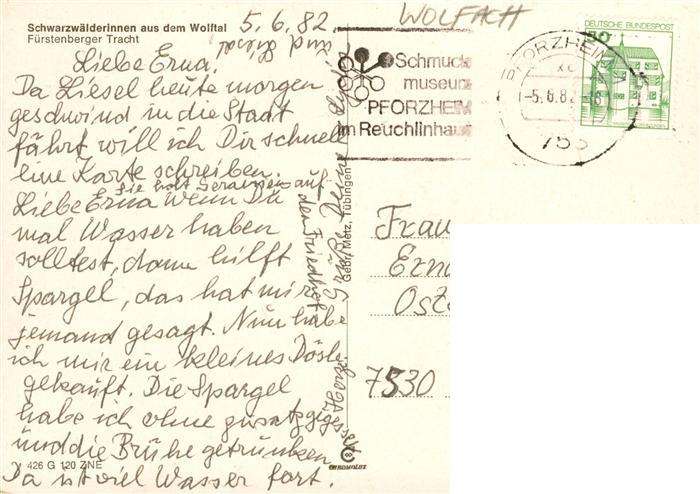 Schwarzwälderinnen aus dem Wolftal
Fürstenberger Tracht
5.6.82
WOLFACH
Liebe Erna.
Da Liesel heute morgen
geschwind in die Stadt
fährt will ich Dir schnell
eine Karte schreiben.
Sie holt Geranien auf
den Friedhof.
Liebe Erna wenn Du
mal Wasser haben
solltest, dann hilft
Spargel, das hat mir
jemand gesagt. Nun habe
ich mir ein kleines Dösle
gekauft. Die Spargel
habe ich ohne Zusatz gegessen
und die Brühe getrunken
Da ist viel Wasser fort.
Herzl. Grüße Deine
und
426 G 120 ZNE
Gebr. Metz, Tübingen
CHROMOLUX
Schmuck
museum
PFORZHEIM
im Reuchlinhaus
PFORZHEIM
-5.6.82
753
DEUTSCHE BUNDESPOST
50
Frau
Erna
7530